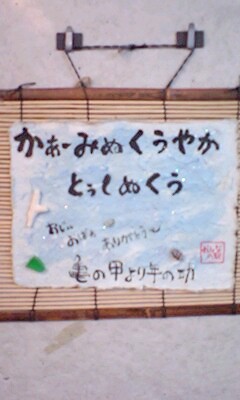 かぁーみぬくうやか
とぅしぬくう
おじぃ
おばぁ
ありがとう〜
亀の甲より年の功